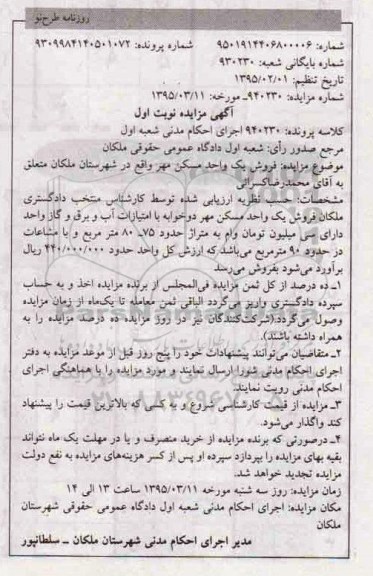 روزنامه طرح‌نو
شماره: ۹۵۰۱۹۱۴۴۰۶۸۰۰۰۰۶ شماره پرونده: ۹۳۰۹۹۸۴۱۴۰۵۰۱۰۷۲
شماره بایگانی شعبه: ۹۳۰۲۳۰
تاریخ تنظیم: ۱۳۹۵/۰۲/۰۱
شماره مزایده: ۹۴۰۲۳۰ـ مورخه: ۱۳۹۵/۰۳/۱۱
آگهی مزایده نوبت اول
کلاسه پرونده: ۹۴۰۲۳۰ اجرای احکام مدنی شعبه اول
مرجع صدور رأی: شعبه اول دادگاه عمومی حقوقی ملکان
موضوع مزایده: فروش یک واحد مسکن مهر واقع در شهرستان ملکان متعلق
به آقای محمدرضاکسرائی
مشخصات: حسب نظریه ارزیابی شده توسط کارشناس منتخب دادگستری
ملکان فروش یک واحد مسکن مهر دوخوابه با امتیازات آب و برق و گاز واحد
دارای سی میلیون تومان وام به متراژ حدود ۷۵ـ ۸۰ متر مربع و با مشاعات
در حدود ۹۰ مترمربع می‌باشد که ارزش کل واحد حدود ۴۴۰/۰۰۰/۰۰۰ ریال
برآورد می‌شود بفروش می‌رسد
۱ـ ده درصد از کل ثمن مزایده فی‌المجلس از برنده مزایده اخذ و به حساب
سپرده دادگستری واریز می‌گردد الباقی ثمن معامله تا یک‌ماه از زمان مزایده
وصول می‌گردد.(شرکت‌کنندگان نیز در روز مزایده ده درصد مزایده را به
همراه داشته باشند).
۲ـ متقاضیان می‌توانند پیشنهادات خود را پنج روز قبل از موعد مزایده به دفتر
اجرای احکام مدنی شورا ارسال نمایند و مورد مزایده را با هماهنگی اجرای
احکام مدنی رویت نمایند.
۳ـ مزایده از قیمت کارشناسی شروع و به کسی که بالاترین قیمت را پیشنهاد
کند واگذار می‌شود.
۴ـ درصورتی که برنده مزایده از خرید منصرف و یا در مهلت یک ماه نتواند
بقیه بهای مزایده را بپردازد سپرده او پس از کسر هزینه‌های مزایده به نفع دولت
مزایده تجدید خواهد شد.
زمان مزایده: روز سه شنبه مورخه ۱۳۹۵/۰۳/۱۱ ساعت ۱۳ الی ۱۴
مکان مزایده: اجرای احکام مدنی شعبه اول دادگاه عمومی حقوقی شهرستان
ملکان
مدیر اجرای احکام مدنی شهرستان ملکان ـ سلطانپور